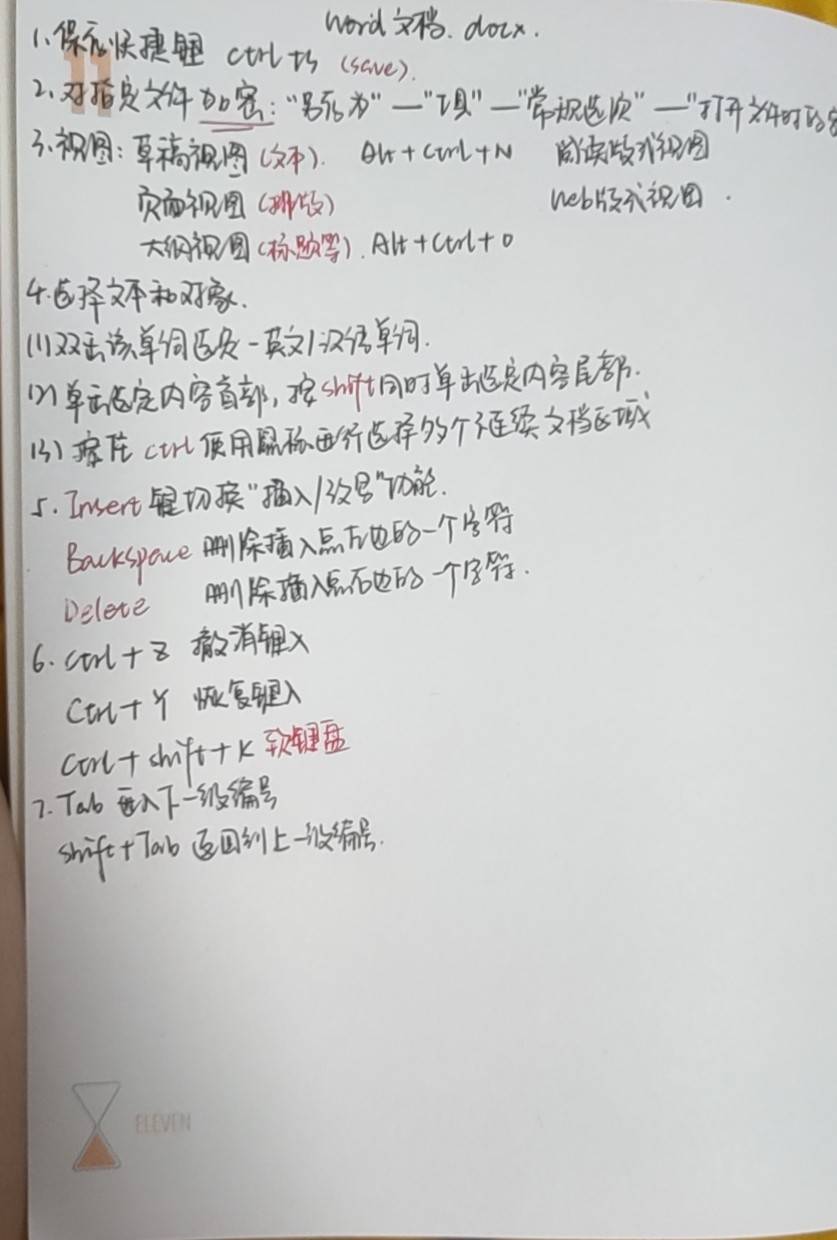 word 文档. docx.
1. 保存快捷键 ctrl+s (save).
2. 对指定文件加密: "另存为" — "工具" — "常规选项" — "打开文件时的密
3. 视图: 草稿视图 (文本). Alt + Ctrl + N 阅读版式视图
页面视图 (排版) Web版式视图.
大纲视图 (标题等). Alt + Ctrl + O
4. 选择文本和对象.
(1) 双击该单词选定一英文/汉语单词.
(2) 单击选定内容首部, 按shift同时单击选定内容尾部.
(3) 按住 ctrl 使用鼠标进行选择多个连续文档区域
5. Insert 键切换"插入/改写"功能.
Backspace 删除插入点左边的一个字符
Delete 删除插入点右边的一个字符.
6. Ctrl + Z 撤消键入
Ctrl + Y 恢复键入
Ctrl + shift + K 软键盘
7. Tab 进入下一级编号
shift + Tab 返回到上一级编号.
11
ELEVEN